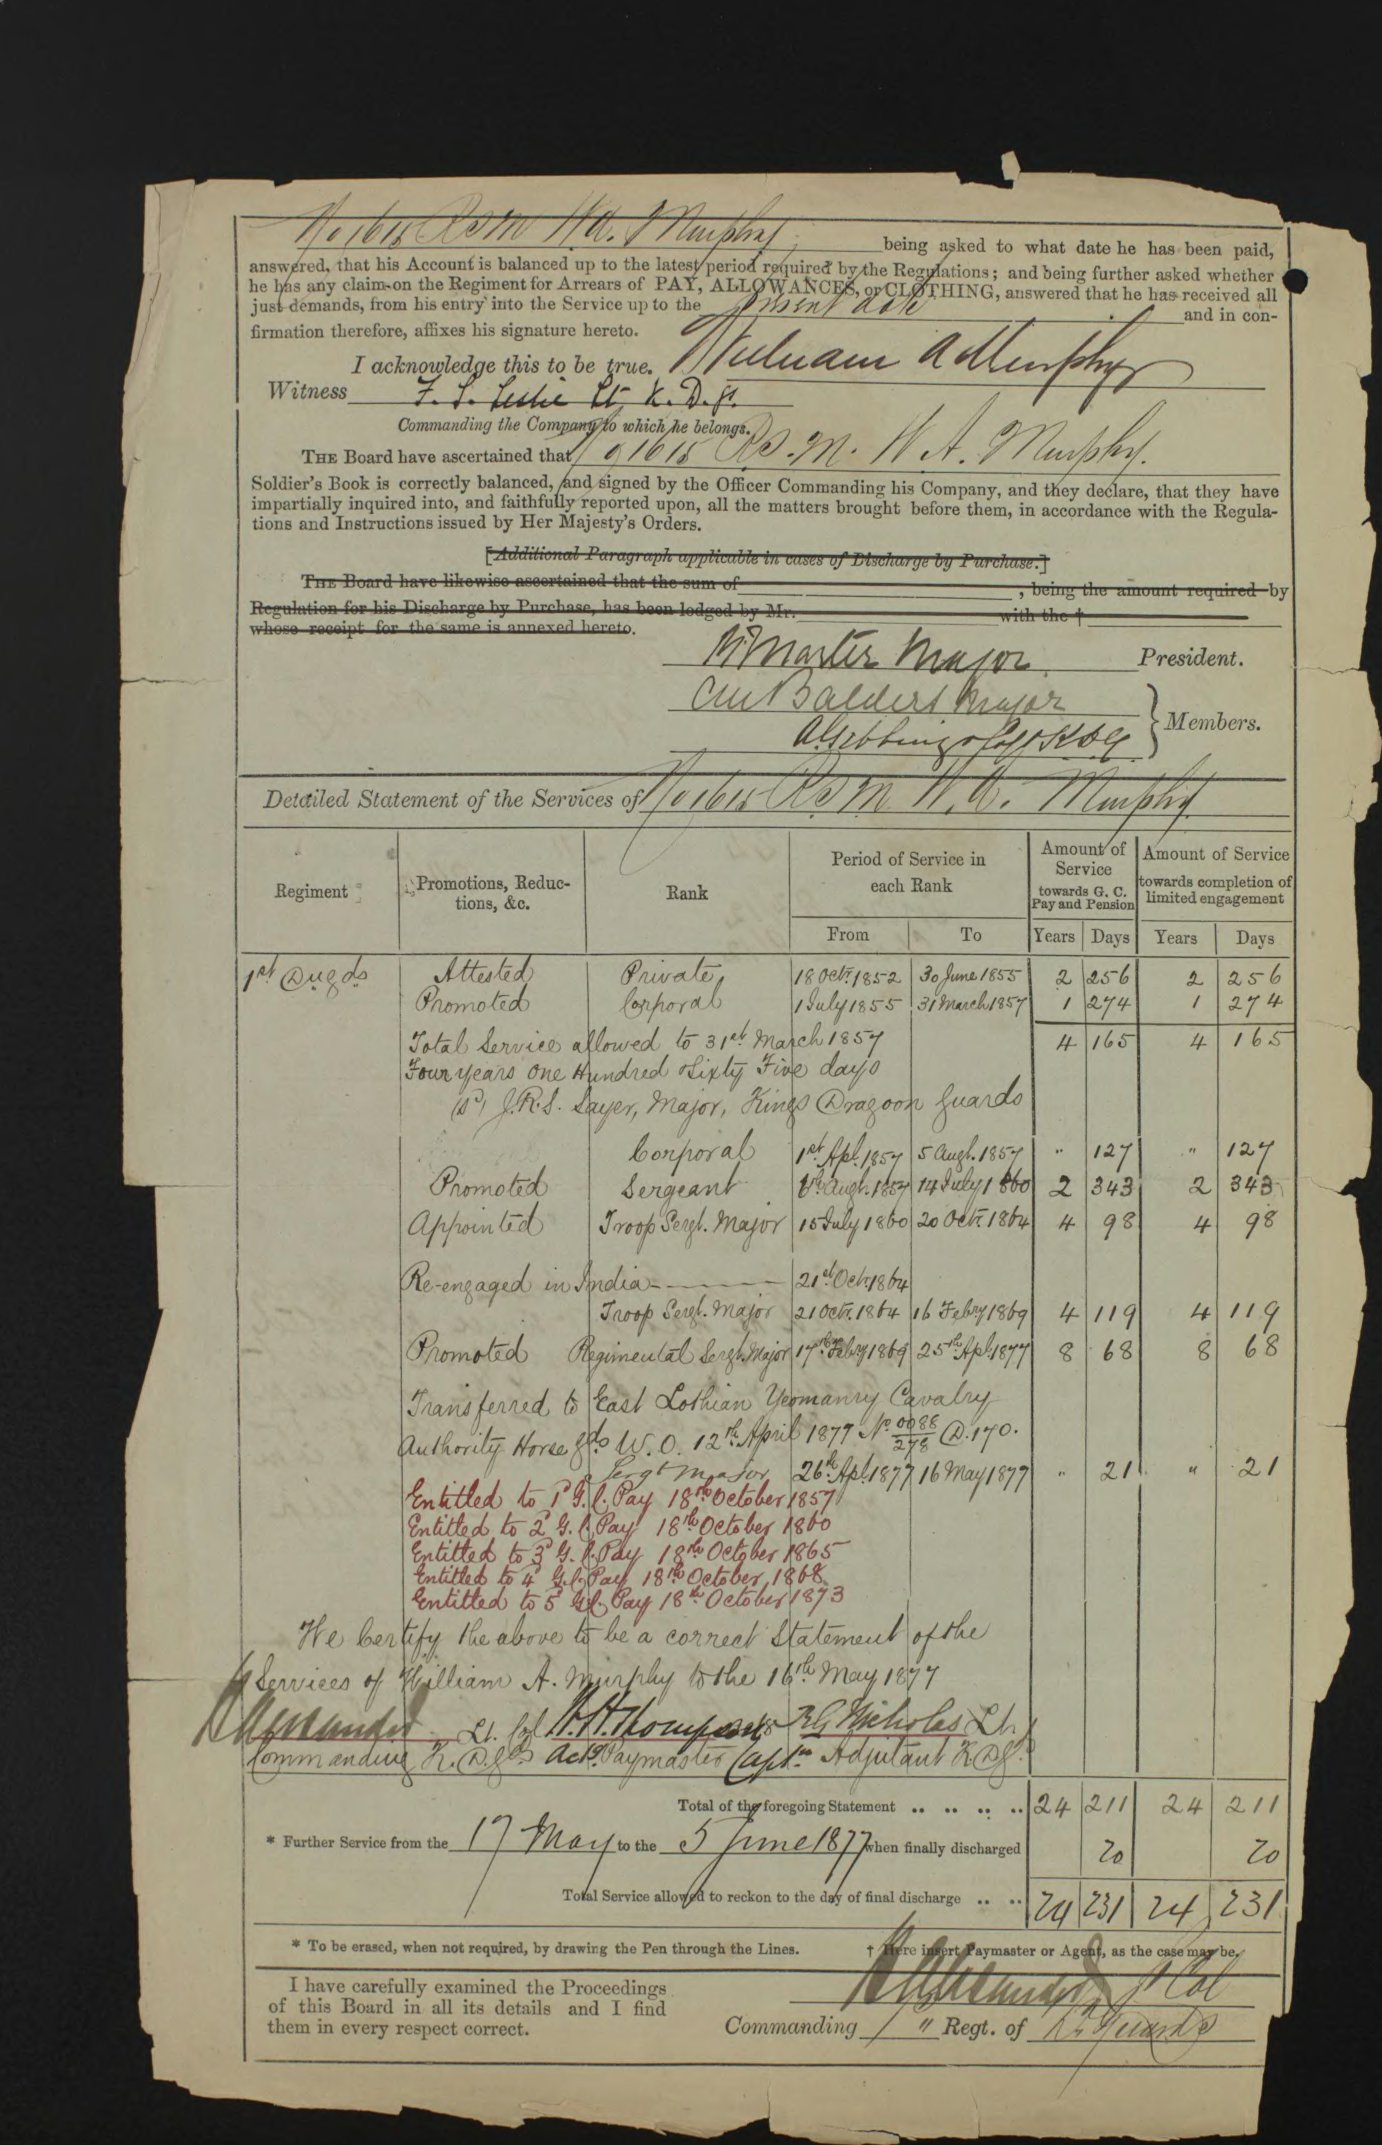 No 1615 RSM W.A. Murphy being asked to what date he has been paid,
answered, that his Account is balanced up to the latest period required by the Regulations; and being further asked whether
he has any claim on the Regiment for Arrears of PAY, ALLOWANCES, or CLOTHING, answered that he has received all
just demands, from his entry into the Service up to the present date and in con-
firmation therefore, affixes his signature hereto.
I acknowledge this to be true. William A Murphy
Witness F. S. Leslie Lt K.D.Gs.
Commanding the Company to which he belongs.
THE Board have ascertained that No 1615 R.S.M. W.A. Murphy.
Soldier's Book is correctly balanced, and signed by the Officer Commanding his Company, and they declare, that they have
impartially inquired into, and faithfully reported upon, all the matters brought before them, in accordance with the Regula-
tions and Instructions issued by Her Majesty's Orders.
[Additional Paragraph applicable in cases of Discharge by Purchase.]
THE Board have likewise ascertained that the sum of , being the amount required by
Regulation for his Discharge by Purchase, has been lodged by Mr. with the †
whose receipt for the same is annexed hereto.
Marter Major President.
Balders Major
Members.
Capt KDG
Detailed Statement of the Services of No 1615 R.S.M. W.A. Murphy
Regiment Promotions, Reduc-tions, &c. Rank Period of Service in each Rank Amount of Service towards G. C. Pay and Pension Amount of Service towards completion of limited engagement
From To Years Days Years Days
1st Dn gds Attested Private 18 Octr. 1852 30 June 1855 2 256 2 256
Promoted Corporal 1 July 1855 31 March 1857 1 274 1 274
Total Service allowed to 31st March 1857 4 165 4 165
Four years One Hundred Sixty Five days
(sd) J.R.S. Sayer, Major, Kings Dragoon Guards
Corporal 1st Apl. 1857 5 Augt. 1857 " 127 " 127
Promoted Sergeant 6th Augt. 1857 14 July 1860 2 343 2 343
Appointed Troop Sergt. Major 15 July 1860 20 Octr. 1864 4 98 4 98
Re-engaged in India 21st Octr. 1864
Troop Sergt. Major 21 Octr. 1864 16 Febry 1869 4 119 4 119
Promoted Regimental Sergt. Major 17th Febry 1869 25th Apl. 1877 8 68 8 68
Transferred to East Lothian Yeomanry Cavalry
Authority Horse Gds W.O. 12th April 1877 No 0088/278 D.170.
Sergt Major 26th Apl. 1877 16 May 1877 " 21 " 21
Entitled to 1d G.C. Pay 18th October 1857
Entitled to 2d G.C. Pay 18th October 1860
Entitled to 3d G.C. Pay 18th October 1865
Entitled to 4d G.C. Pay 18th October 1868
Entitled to 5d G.C. Pay 18th October 1873
We Certify the above to be a correct Statement of the
Services of William A. Murphy to the 16th May 1877
Alexander Lt. Col W.H. Thompson RG Nicholas Lt.
Commanding K.D.Gds Actg. Paymaster Captn. Adjutant KDGs
Total of the foregoing Statement .. .. .. .. 24 211 24 211
* Further Service from the 17 May to the 5 June 1877 when finally discharged 20 20
Total Service allowed to reckon to the day of final discharge .. .. 24 231 24 231
* To be erased, when not required, by drawing the Pen through the Lines. † Here insert Paymaster or Agent, as the case may be.
I have carefully examined the Proceedings
of this Board in all its details and I find
them in every respect correct.
Alexander Lt Col
Commanding 1st Regt. of Dn Guards